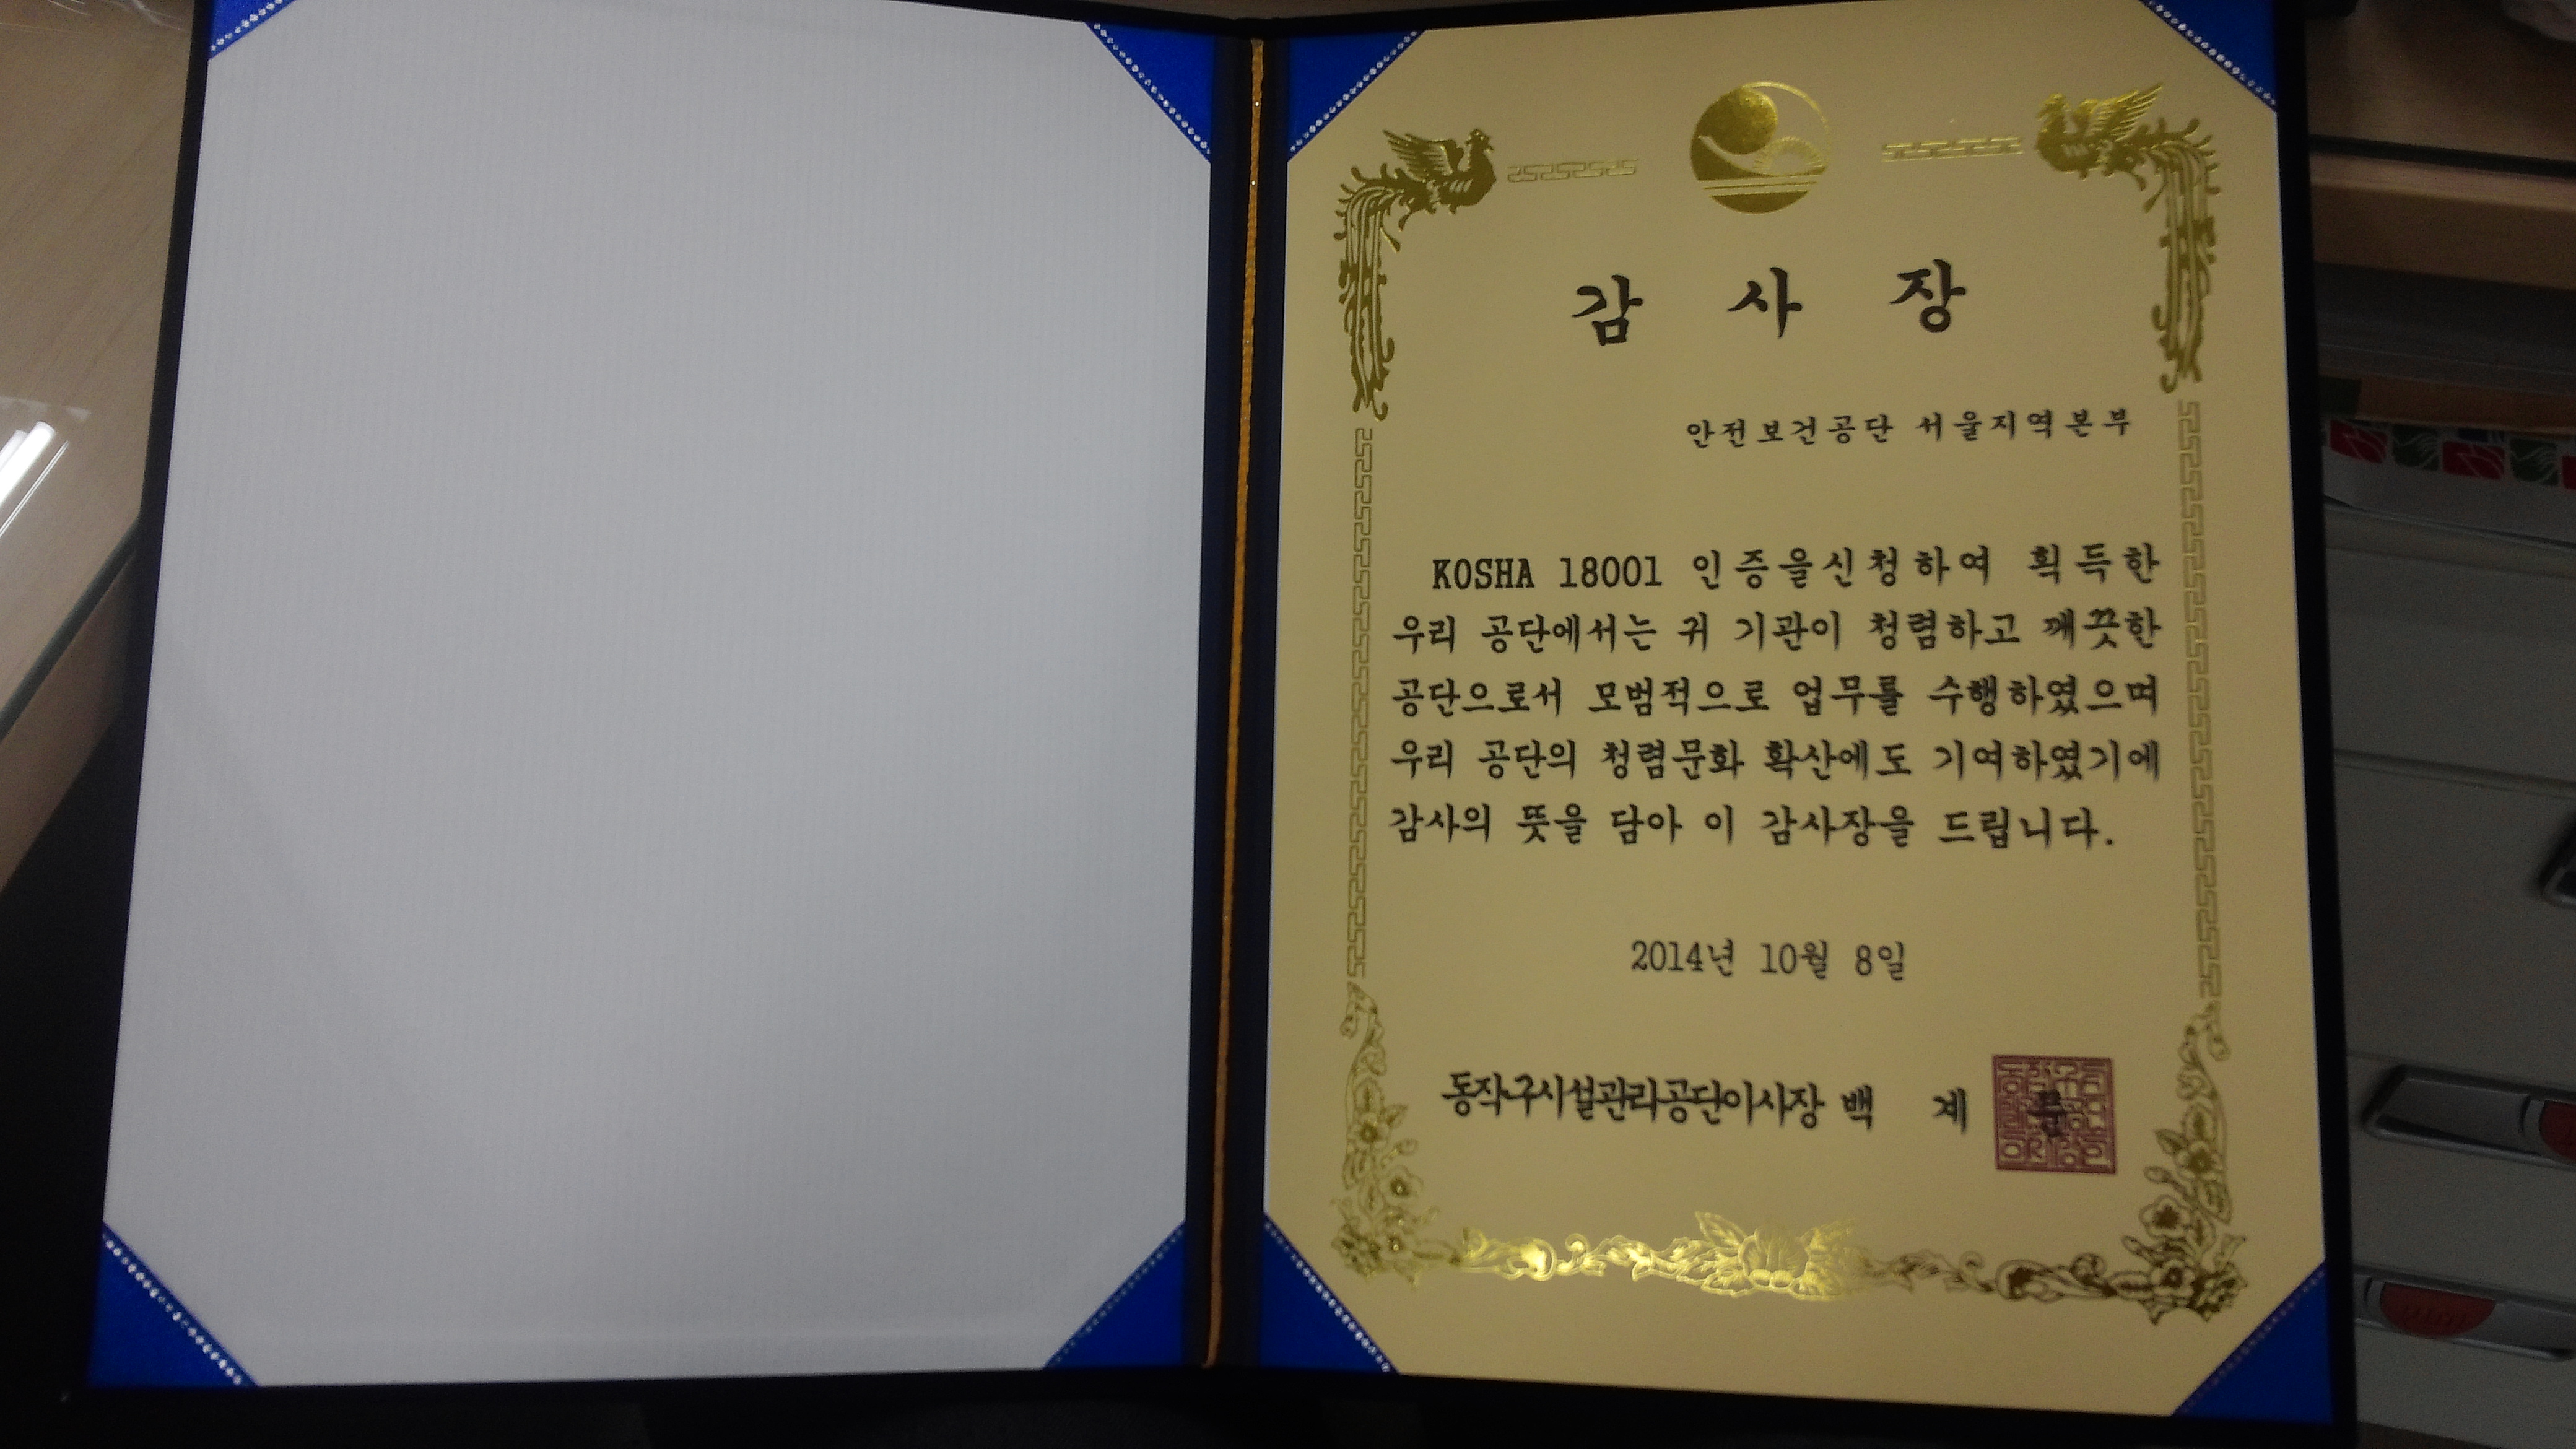 감 사 장
안전보건공단 서울지역본부
KOSHA 18001 인증을신청하여 획득한
우리 공단에서는 귀 기관이 청렴하고 깨끗한
공단으로서 모범적으로 업무를 수행하였으며
우리 공단의 청렴문화 확산에도 기여하였기에
감사의 뜻을 담아 이 감사장을 드립니다.
2014년 10월 8일
동작구시설관리공단이사장 백 계